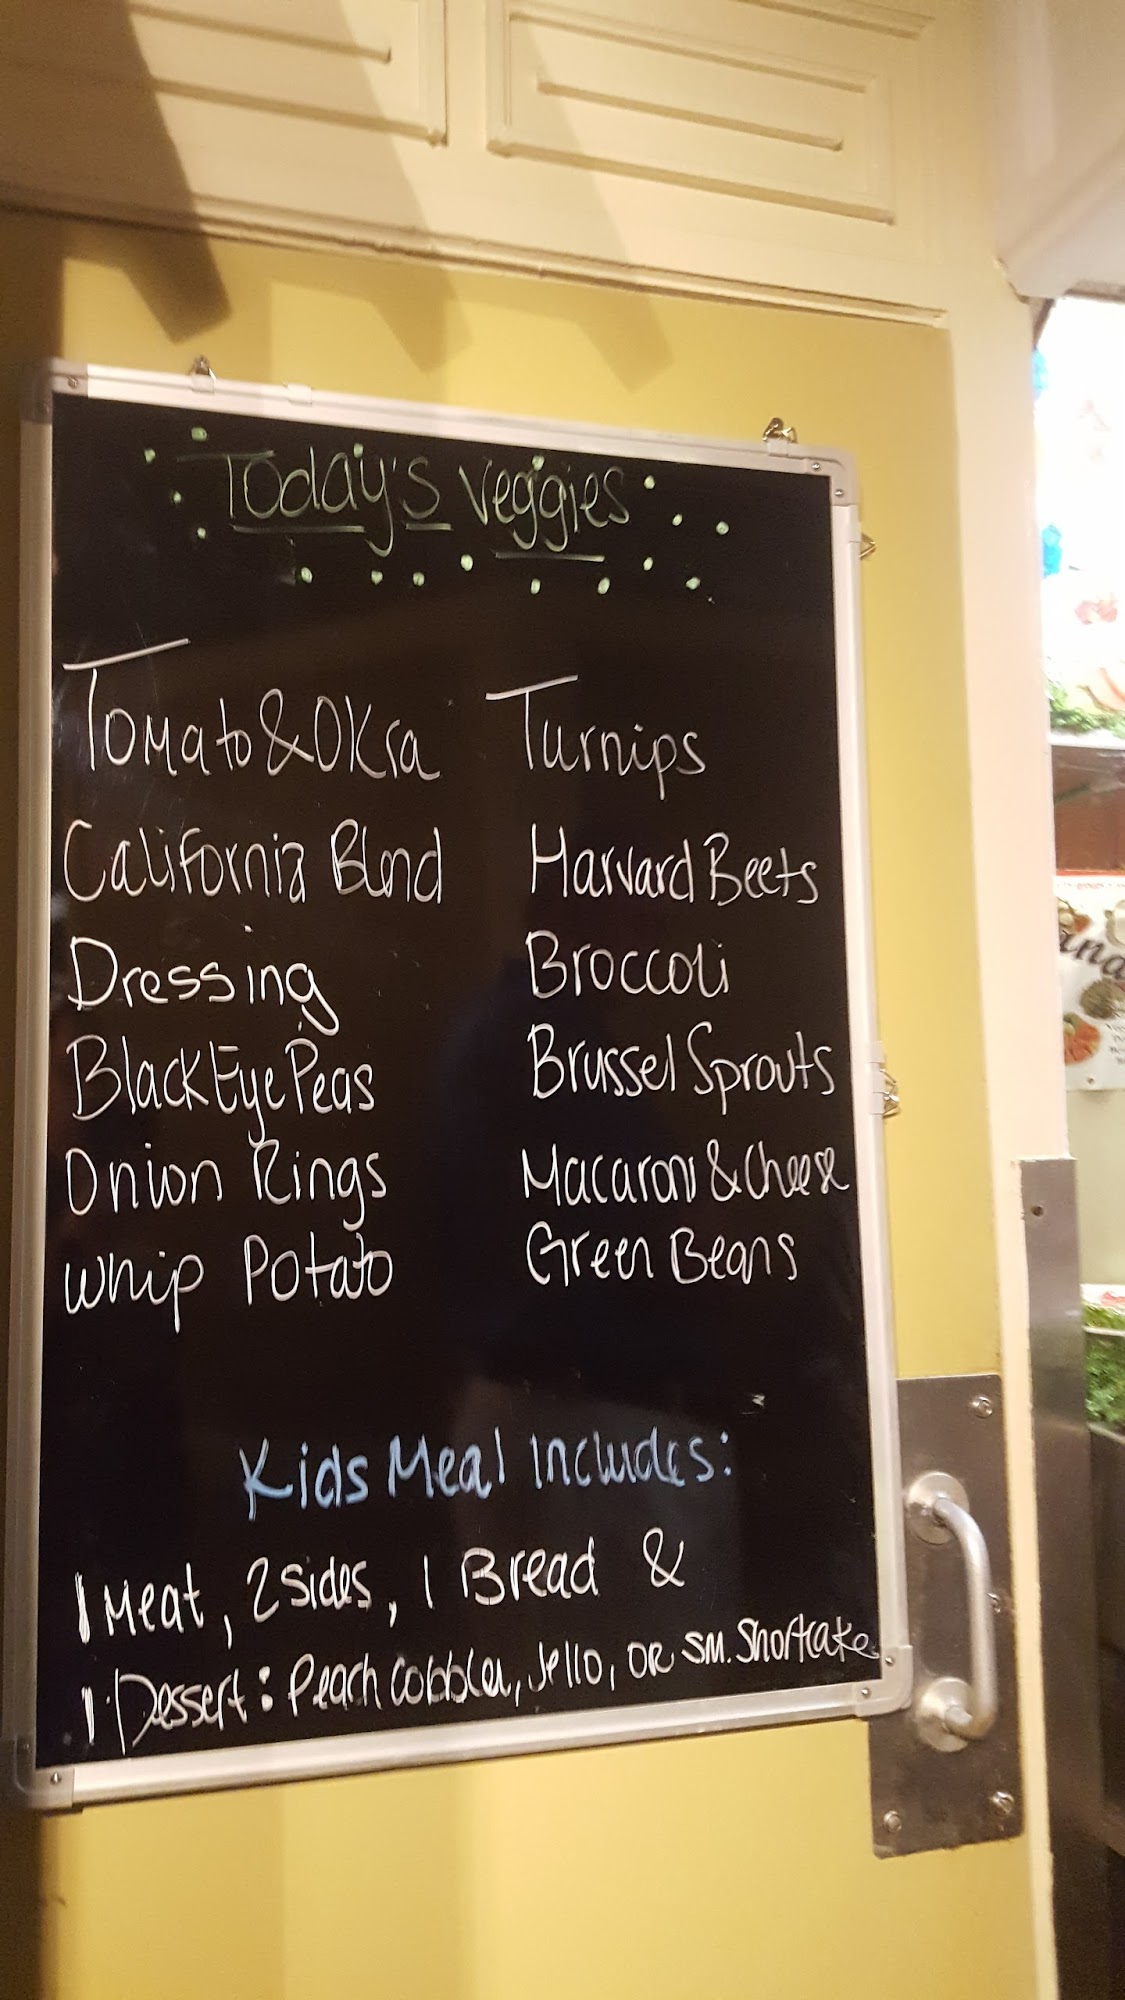 Today's Veggies
Tomato & Okra
California Blend
Dressing
Black Eye Peas
Onion Rings
Whip Potato
Turnips
Harvard Beets
Broccoli
Brussel Sprouts
Macaroni & Cheese
Green Beans
Kids Meal Includes:
1 Meat, 2 Sides, 1 Bread &
1 Dessert: Peach Cobbler, Jello, OR SM. Shortcake